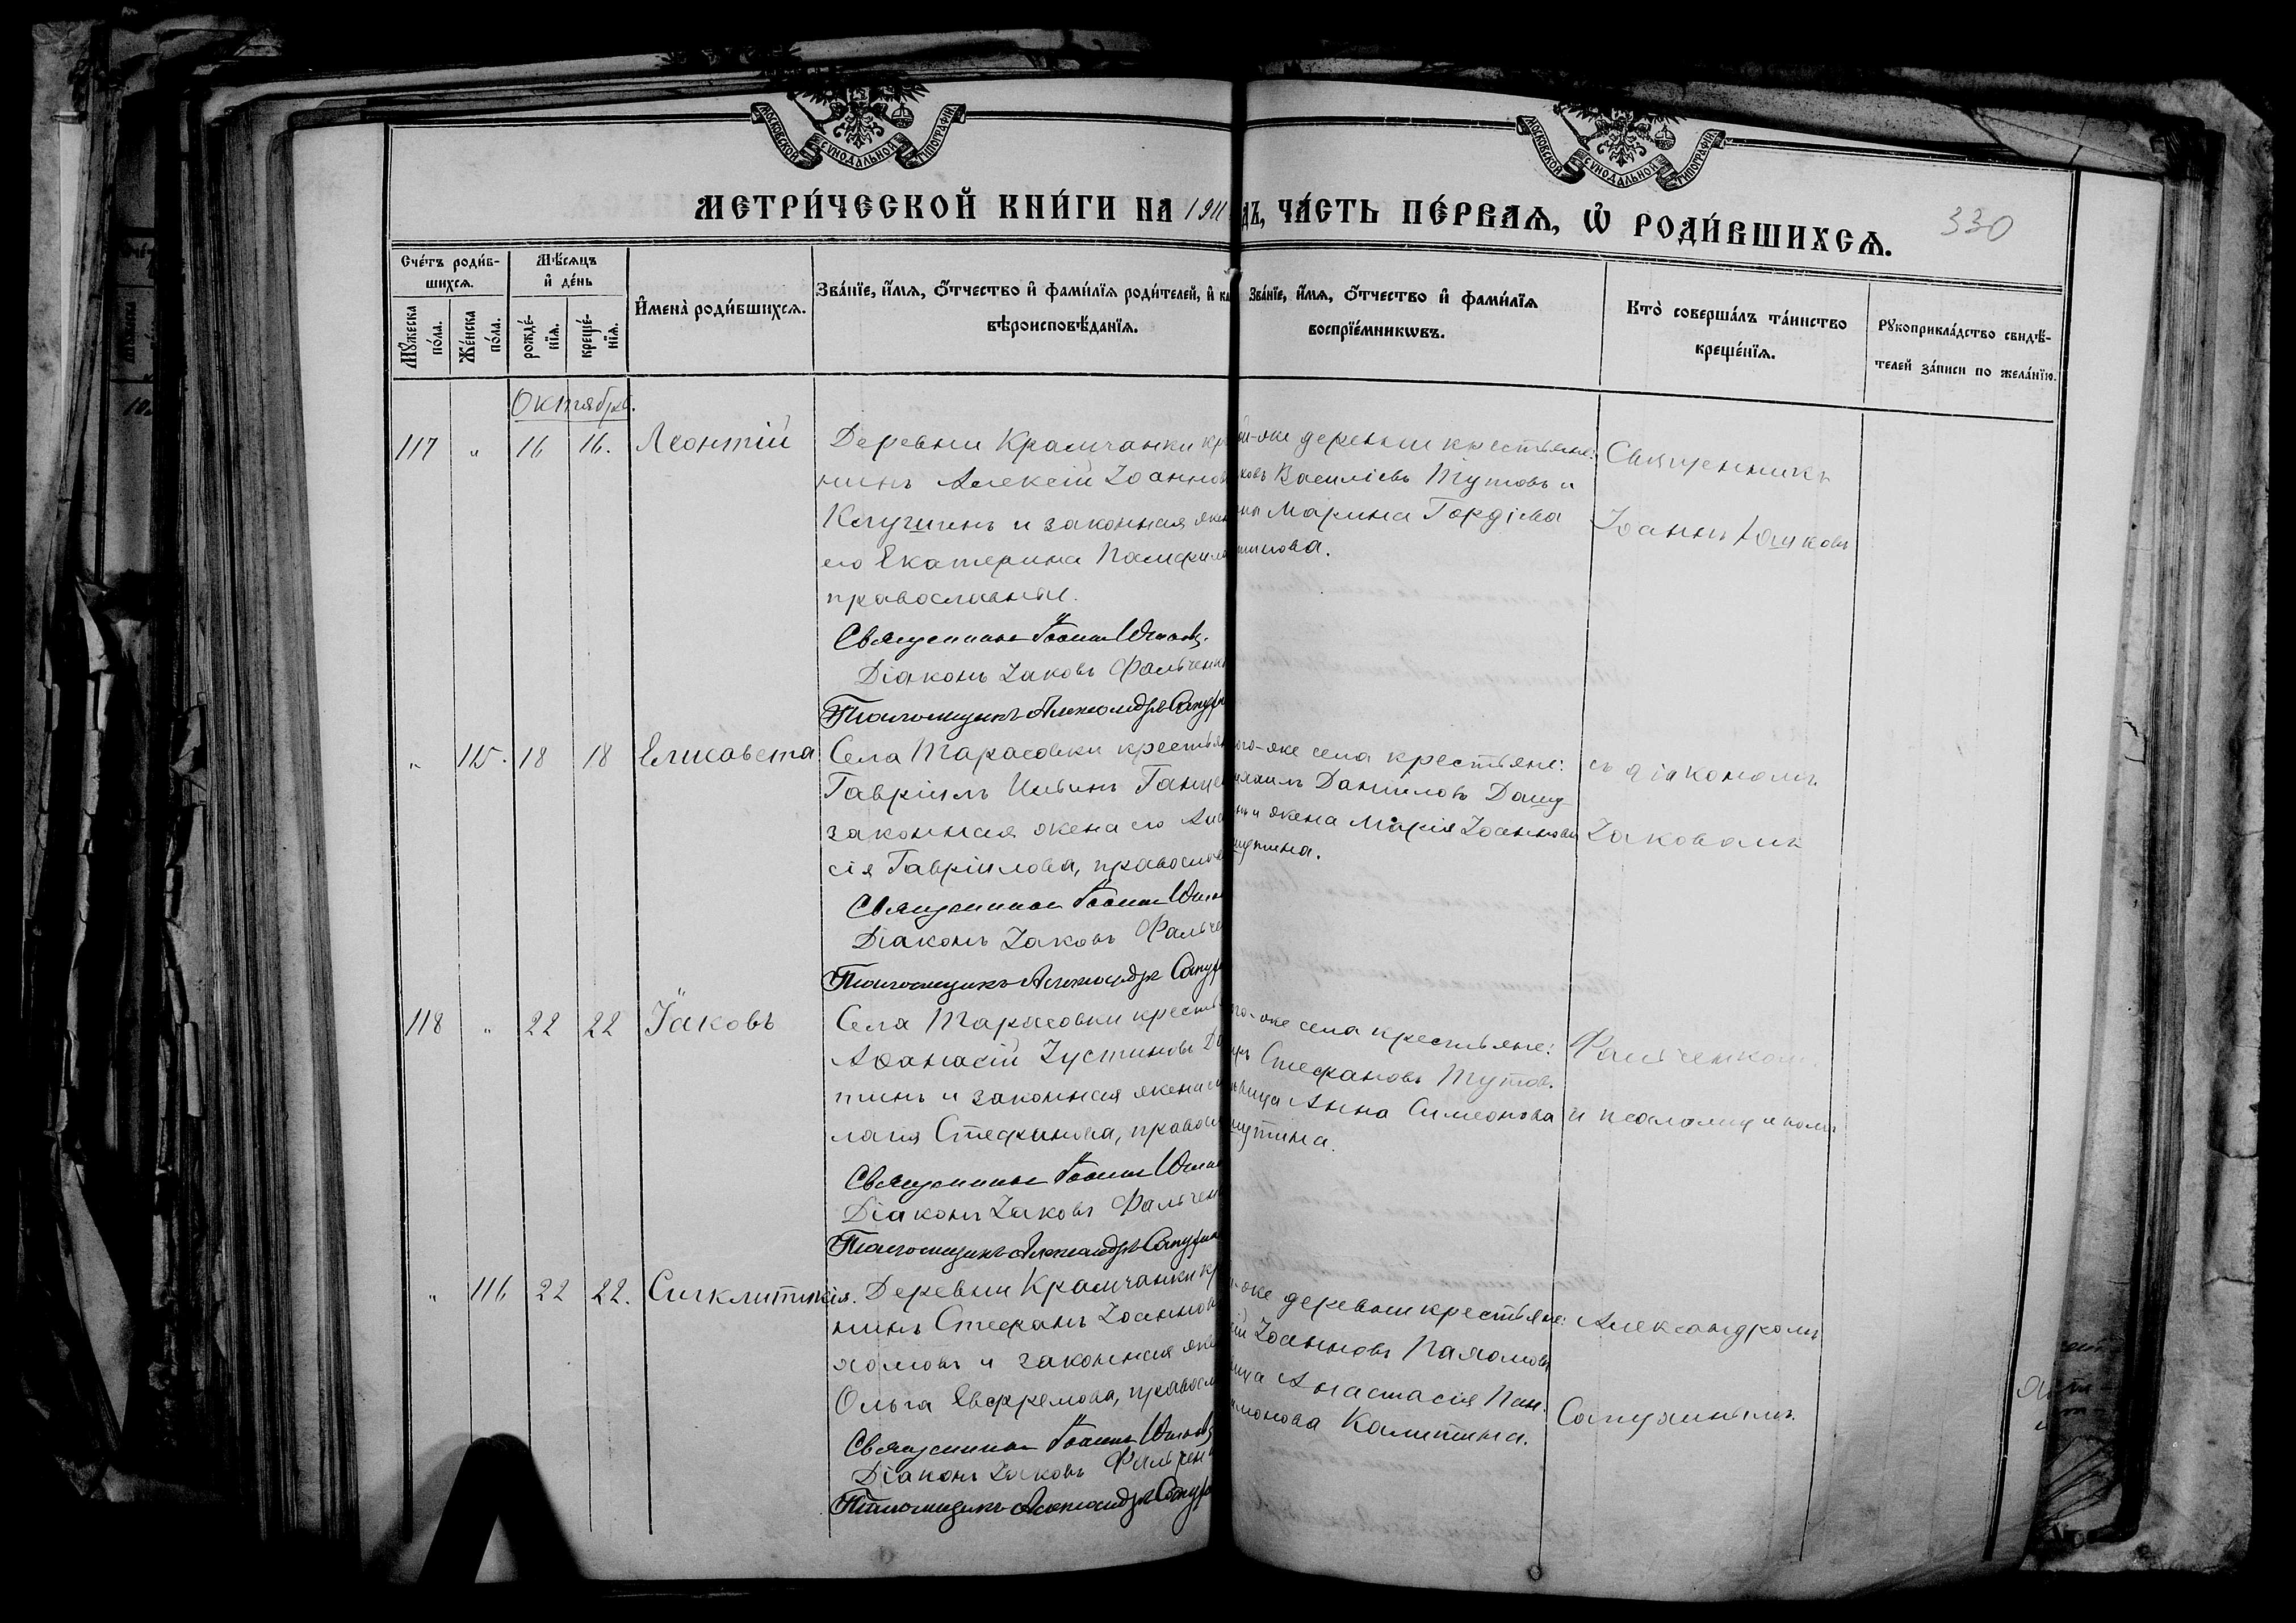 МОСКОВСКОЙ СѴНОДАЛЬНОЙ ТИПОГРАФІИ
МОСКОВСКОЙ СѴНОДАЛЬНОЙ ТИПОГРАФІИ
МЕТРИ́ЧЕСКОЙ КНИ́ГИ НА 1911
дъ, ЧА́СТЬ ПЕ́РВАѦ, Ѽ РОДИ́ВШИХСѦ.
330
Сче́тъ роди́в-
шихсѧ.
Мꙋ́жеска
по́ла.
Же́нска
по́ла.
Мѣ́сѧцъ
и҆ де́нь
рожде́-
нїѧ.
креще́-
нїѧ.
И҆мена̀ роди́вшихсѧ.
Зва́нїе, и҆́мѧ, ѻ҆́тчество и҆ фами́лїѧ роди́телей, и҆ ка
вѣроисповѣ́данїѧ.
Зва́нїе, и҆́мѧ, ѻ҆́тчество и҆ фами́лїѧ
воспрїе́мникѡвъ.
Кто̀ соверша́лъ та́инство
креще́нїѧ.
Рꙋкоприкла́дство свидѣ́-
телей за́писи по жела́нїю.
Октябрь.
117 " 16 16. Леонтій
Деревни Крамчанки кр
нинъ Алексій Іоаннов
Клугшинъ и законная жен
его Екатерина Памфило
православные.
Священникъ Іоаннъ Юшковъ.
Діаконъ Іаковъ Фальченк
Псаломщикъ Александръ Сапух
ой-же деревни крестьяне:
ковъ Василіевъ Тутовъ и
на Марина Гордіева
тинова.
Священникъ
Іоаннъ Юшковъ
" 115. 18 18 Елисавета
Села Тарасовки крестья
Гавріилъ
законная жена его Ана
сія Гавріилова, правосла
Священникъ Іоаннъ Юшк
Діаконъ Іаковъ Фальче
Псаломщикъ Александръ Сапух
ого-же села крестьяне:
Даніиловъ Дашу-
жена Марія Іоаннова
шутина.
съ діакономъ
Іаковомъ
118 " 22 22 Іаковъ
Села Тарасовки кресть
Аѳанасій Іустиновъ Да
тинъ и законная жена
лагія Стефанова, правосл
Священникъ Іоаннъ Юшк
Діаконъ Іаковъ Фальчен
Псаломщикъ Александръ Сапухин
го-же села крестьяне:
Стефановъ Тутов.
вица Анна Симеонова
шутина.
Фальченкомъ
и псаломщикомъ
" 116 22 22. Сигклитикія.
Деревни Крамчанки кр
нинъ Стефанъ Іоаннов
хомовъ и законная же
Ольга Евфремова, правосл
Священникъ Іоаннъ Юшковъ
Діаконъ Іаковъ Фальчен
Псаломщикъ Александръ Сапух
же деревни крестьяне:
ій Іоанновъ Пахомовъ
ица Анастасія Пан-
имонова Калитина.
Александромъ
Сапухинымъ.